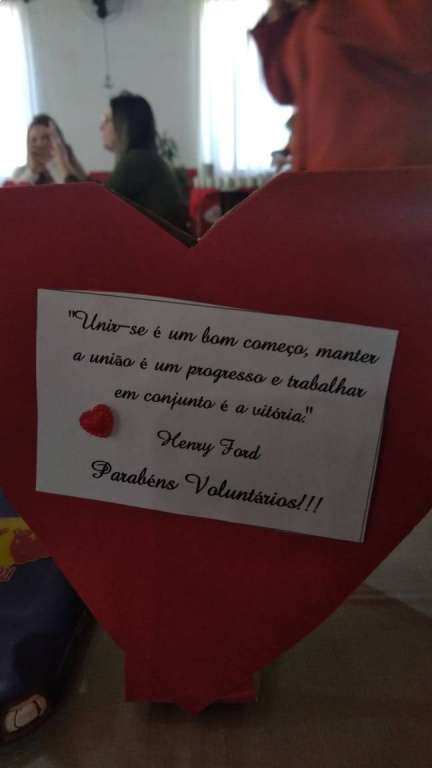 "Unir-se é um bom começo, manter
a união é um progresso e trabalhar
em conjunto é a vitória."
Henry Ford
Parabéns Voluntários!!!